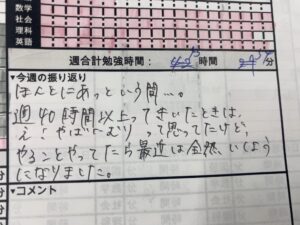 数学
社会
理科
英語
週合計勉強時間: 時間 分
▼今週の振り返り
ほんとにあっという間…。
週40時間以上ってきいたときは、
え!やばーむりって思ってたけど、
やることやってたら最近は全然いくよう
になりました。
▼コメント